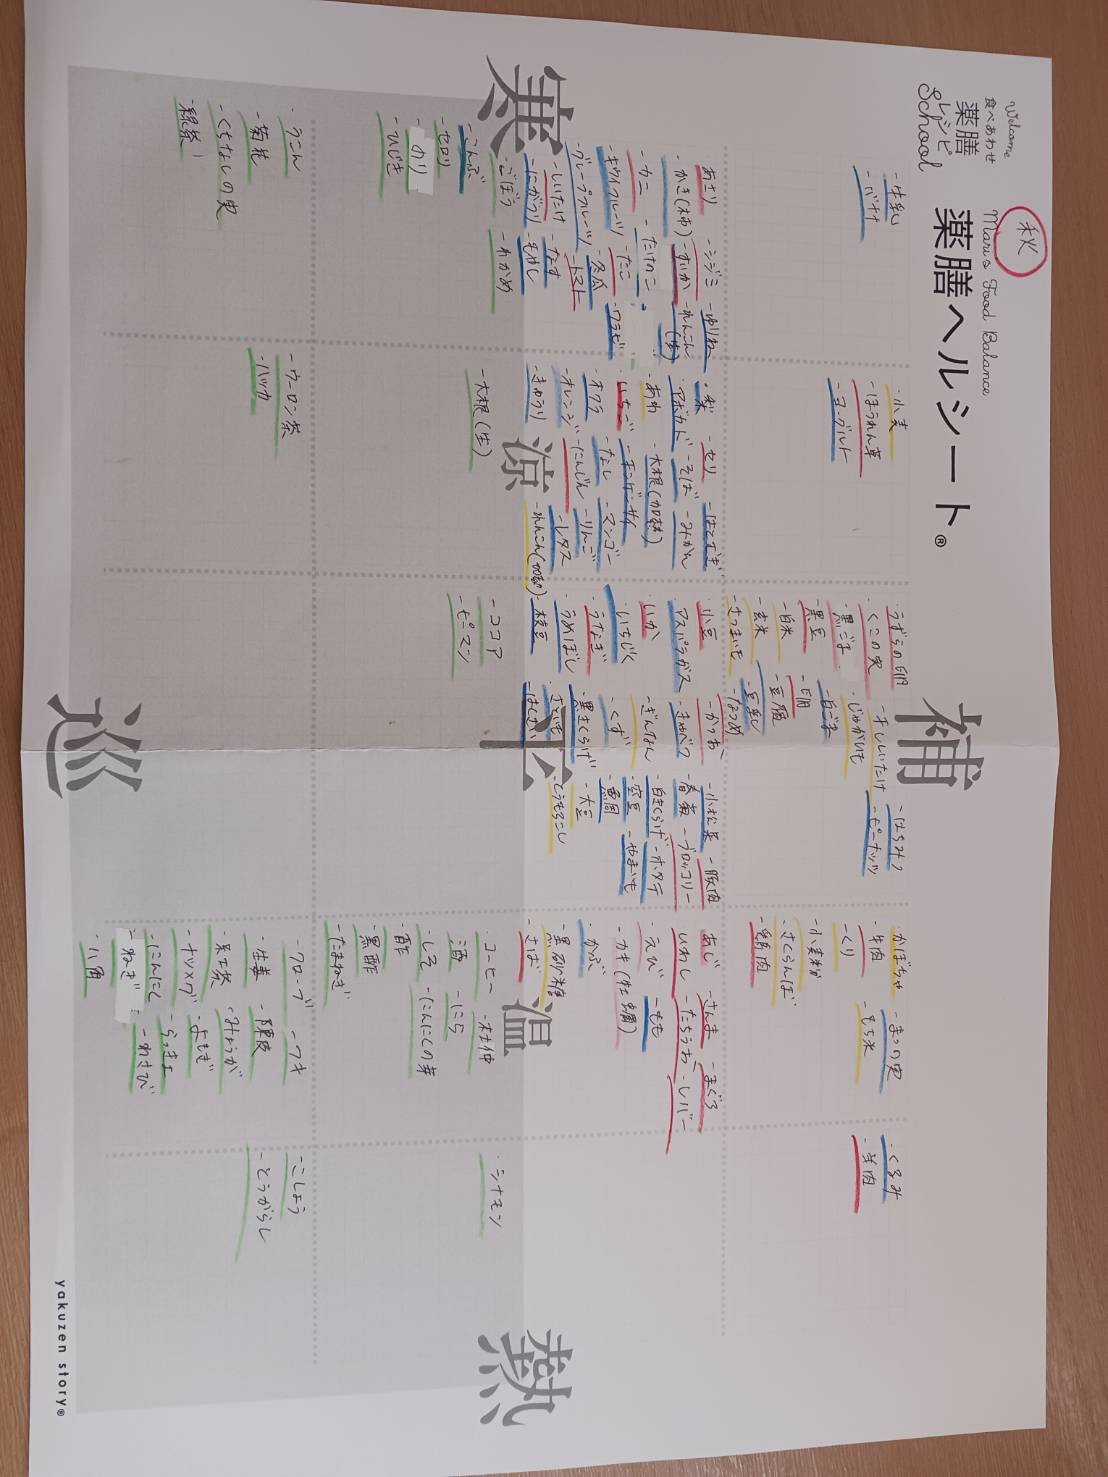 Welcome
食べあわせ
薬膳
レシピ
School
秋
Mari's Food Balance
薬膳ヘルシート®
補
寒
涼
平
温
熱
巡
・牛乳
・バナナ
・小麦
・ほうれん草
・ヨーグルト
うずらの卵
・くこの実
・黒ごま
・黒豆
・白米
・玄米
・さつまいも
・干ししいたけ
・じゃがいも
・白ごま
・卵
・豆腐
・豆乳
・なつめ
・はちみつ
・ピーナッツ
・かぼちゃ
・牛肉
・くり
・小麦粉
・さくらんぼ
・鶏肉
・まつの実
もち米
・くるみ
・羊肉
あさり
・かき(柿)
・カニ
・キウイフルーツ
・グレープフルーツ
・しいたけ
・にがうり
・ごぼう
・シジミ
・すいか
・たけのこ
・たこ
・冬瓜
・トマト
・なす
・もやし
・わかめ
・ゆりね
・れんこん(生)
・ワラビ
・梨
・アボカド
あわ
・いちご
・オクラ
・オレンジ
・きゅうり
・セリ
・そば
・大根(加熱)
・チンゲンサイ
・なし
・にんじん
・はとむぎ
・みかん
・マンゴー
・りんご
・レタス
・れんこん(加熱)
・小豆
アスパラガス
・いか
・いちじく
・うなぎ
・うめぼし
・枝豆
・かつお
・きゃべつ
・ぎんなん
・くず
・黒きくらげ
さといも
・はくさい
・小松菜
・春菊
・白きくらげ
・空豆
・魚岡
・大豆
・とうもろこし
・豚肉
・ブロッコリー
・ホタテ
・やまいも
あじ
いわし
・えび
・カキ(牡蠣)
・かぶ
・黒砂糖
・さば
・さんま
・たちうお
・もも
・まぐろ
・レバー
・こんぶ
・セロリ
・のり
・ひじき
・大根(生)
・ココア
・ピーマン
・コーヒー
酒
・しそ
・酢
・黒酢
・たまねぎ
・杜仲
・にら
・にんにくの芽
・シナモン
・うこん
・菊花
・くちなしの実
・緑茶
・ウーロン茶
・ハッカ
・クローブ
・生姜
・紅茶
・ナツメグ
・にんにく
・ねぎ
・八角
・フキ
・陳皮
・みょうが
・よもぎ
・らっきょ
・わさび
・こしょう
・とうがらし
yakuzen story®